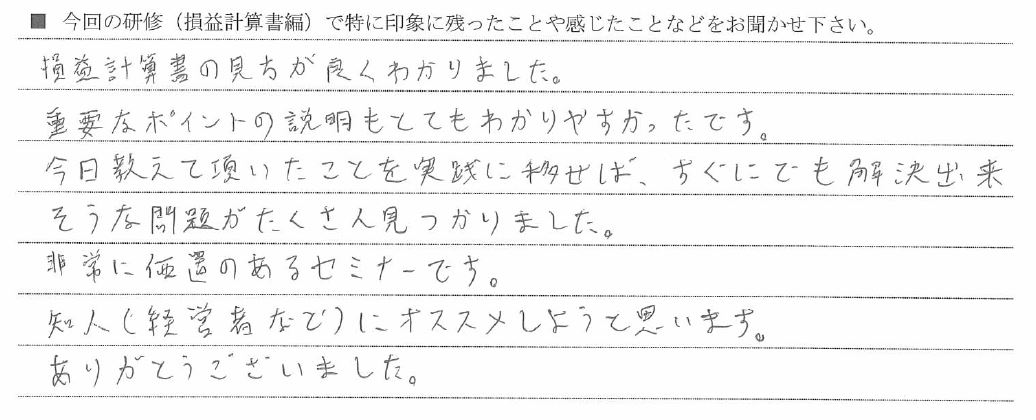 ■ 今回の研修（損益計算書編）で特に印象に残ったことや感じたことなどをお聞かせ下さい。
損益計算書の見方が良くわかりました。
重要なポイントの説明もとてもわかりやすかったです。
今日教えて頂いたことを実践に移せば、すぐにでも解決出来
そうな問題がたくさん見つかりました。
非常に価置のあるセミナーです。
知人（経営者など）にオススメしようと思います。
ありがとうございました。